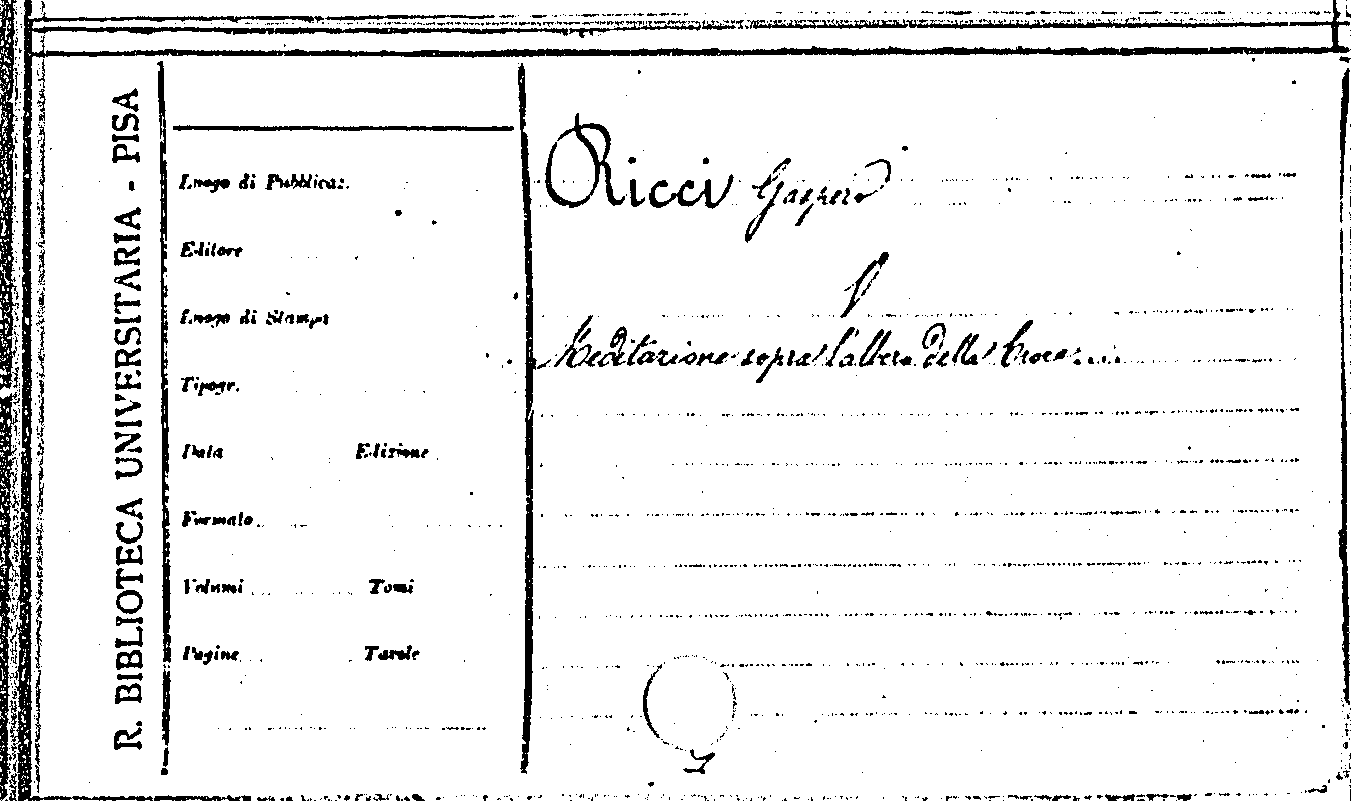 R. BIBLIOTECA UNIVERSITARIA - PISA
Luogo di Pubblicaz.
Editore
Luogo di Stampa
Tipogr.
Data Edizione
Formato
Volumi Tomi
Pagine Tavole
Ricci Gaspero
Meditazione sopra l'albero della Croce...